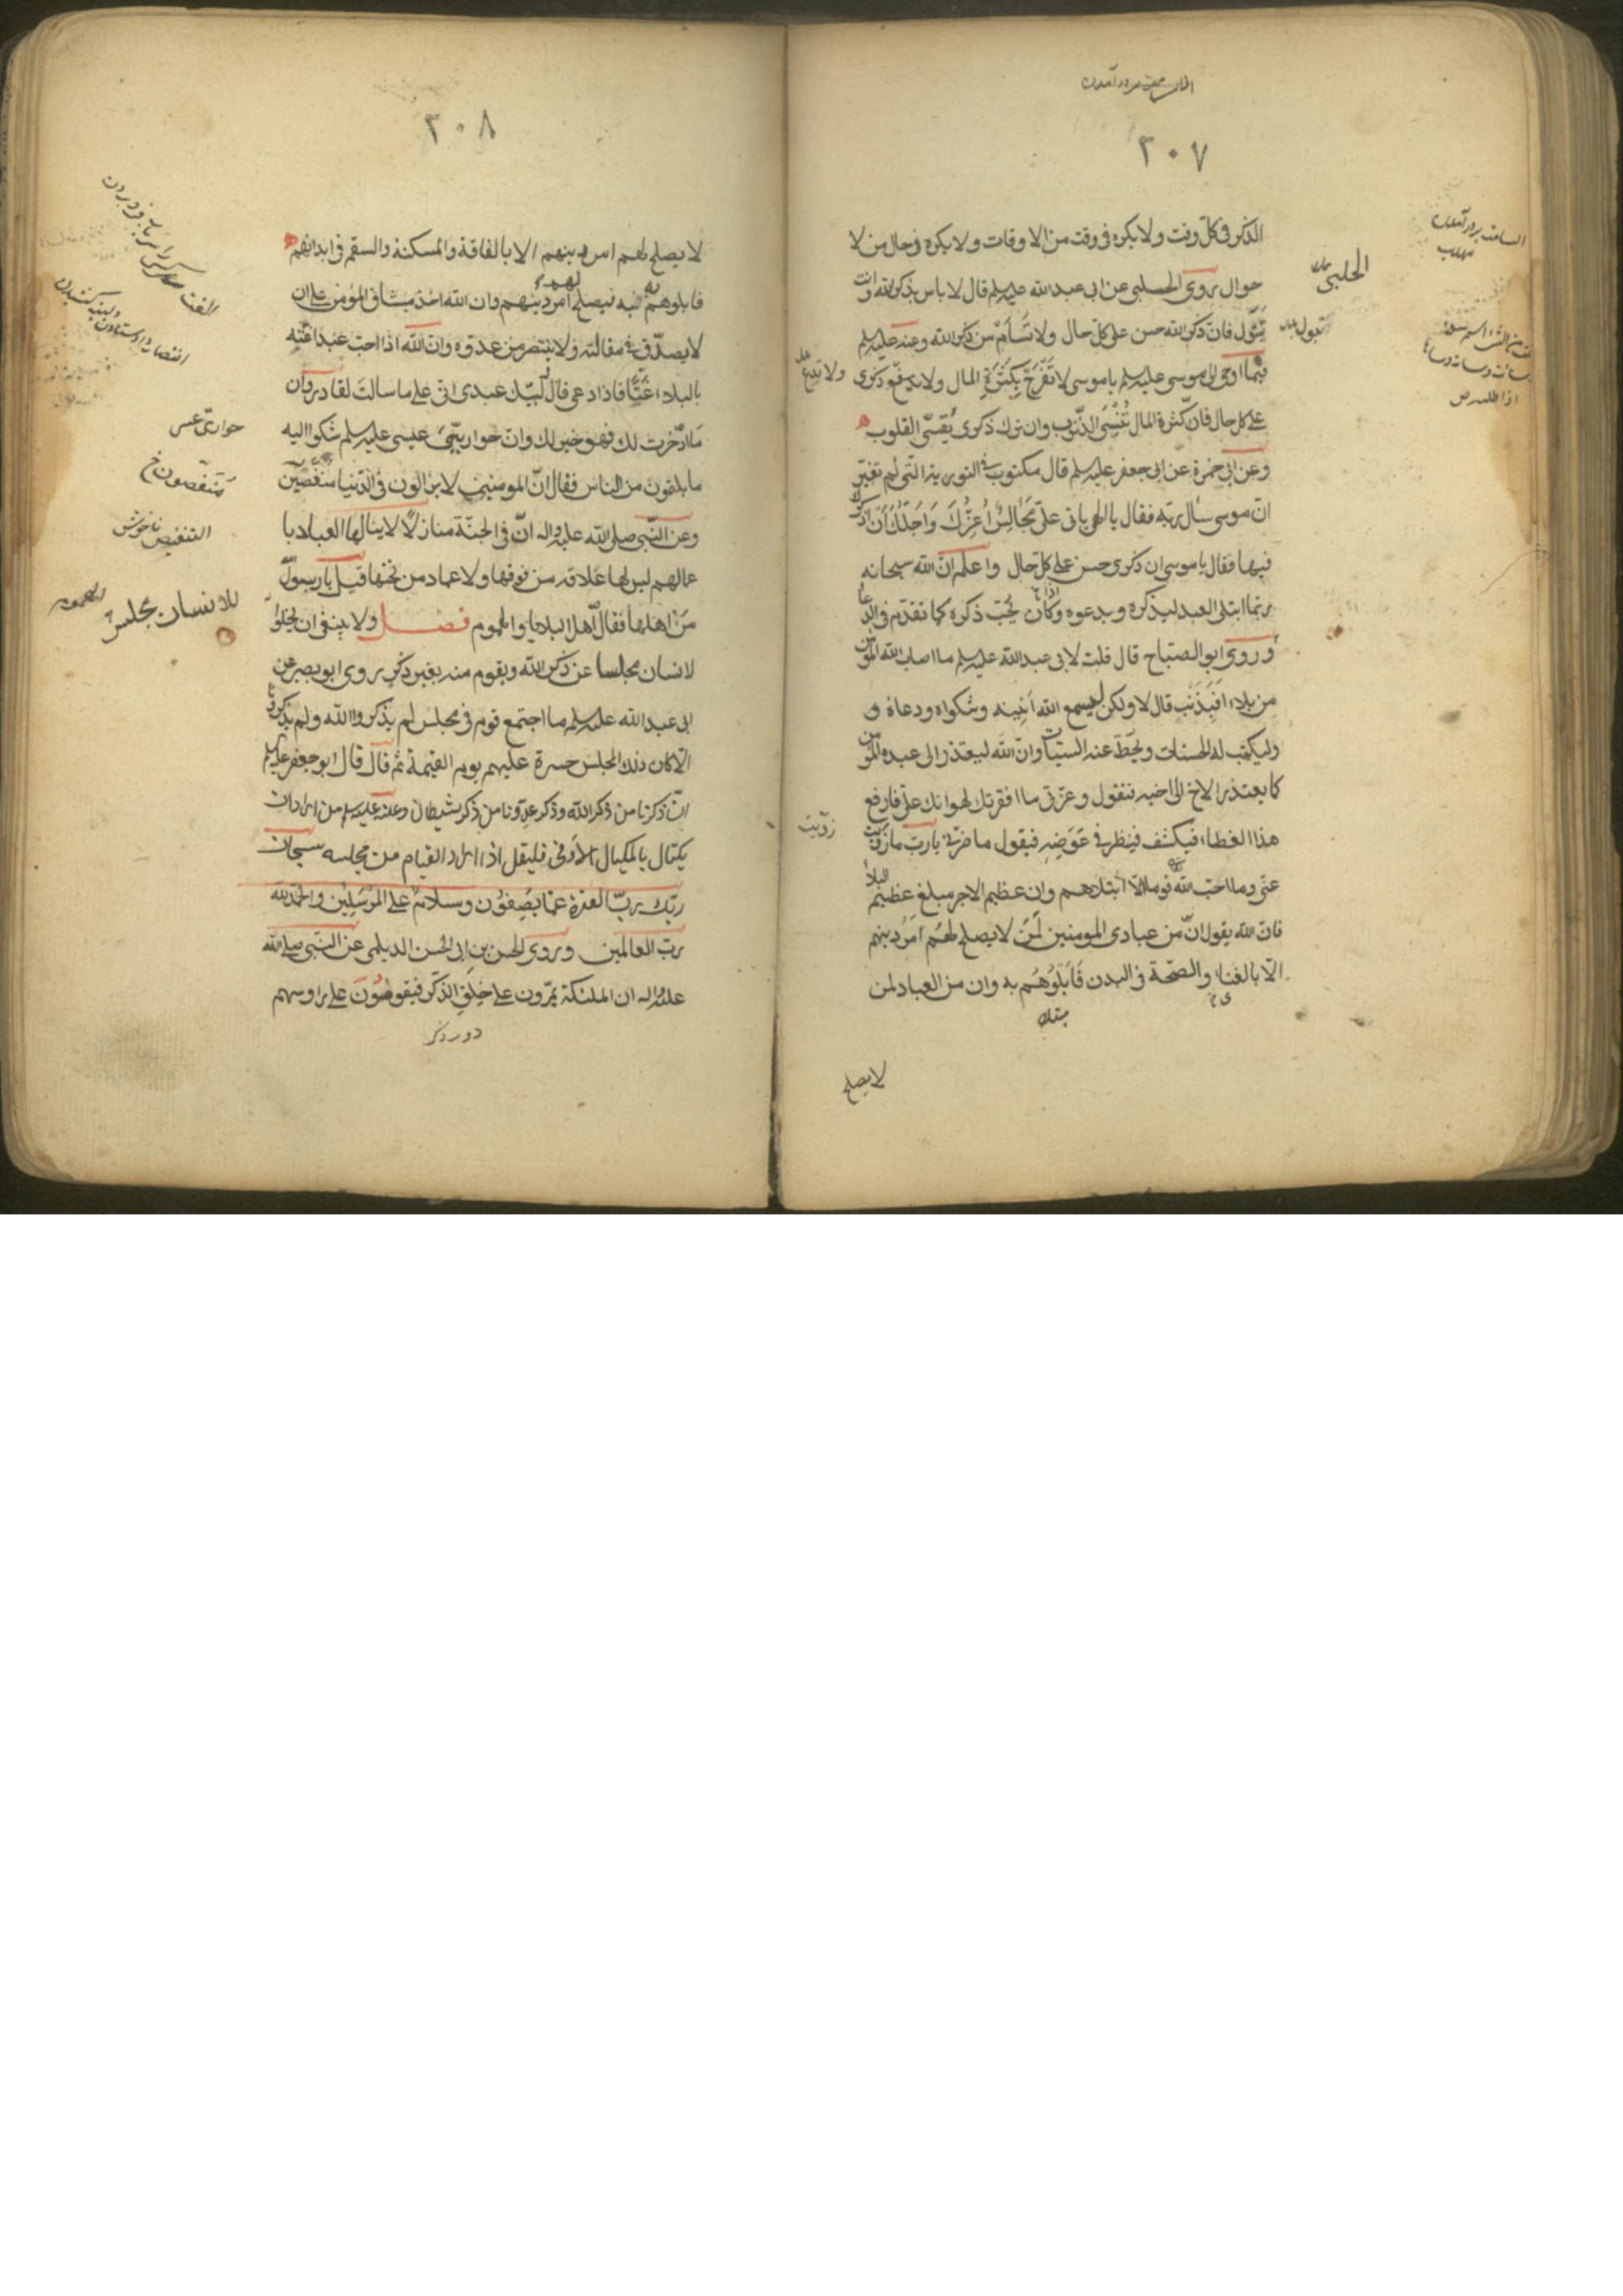 ٣٠٧
الذكر فى كل وقت ولا يكره فى وقت من الاوقات ولا يكره فى حال من لا
حوال روى الحلبى عن ابى عبد الله عليه السلم قال لا باس بذكر الله وانت
تبول فان ذكر الله حسن على كل حال ولا تسأم من ذكر الله وعنه عليه السلم
فيما اوحى الى موسى عليه السلم يا موسى لا تفرح بكثرة المال ولا تدع ذكرى
على كل حال فان كثرة المال تنسى الذنوب وان ترك ذكرى يقسى القلوب
وعن ابى حمزة عن ابى جعفر عليه السلم قال مكتوب فى التورية التى لم تغير
ان موسى سأل ربه فقال يا الهى ياتى على مجالس اعزك واجلك ان اذكرك
فيها فقال يا موسى ان ذكرى حسن على كل حال واعلم ان الله سبحانه
ربما ابتلى العبد ليذكره ويدعوه اذا كان يحب ذكره كما تقدم فى الدعا
وروى ابو الصباح قال قلت لابى عبد الله عليه السلم ما اصاب الله المؤمن
من بلاء افبذنب قال لا ولكن ليسمع الله انينه وشكواه ودعاه و
وليكتب له الحسنات ويحط عنه السيئات وان الله ليعتذر الى عبده المؤمن
كما يعتذر الاخ الى اخيه فيقول وعزتى ما افقرتك لهوانك على فارفع
هذا الغطاء فيكشف فينظر فى عوضه فيقول ما ضرنى يا رب ما زويت
عنى وما احب الله قوما الا ابتلاهم وان عظيم الاجر مبلغ عظيم البلاء
فان الله يقول ان من عبادى المومنين لمن لا يصلح لهم امر دينهم
الا بالغناء والصحة فى البدن فابلوهم به وان من العباد لمن
لا يصلح
الحلبى
تبول
ولا تدع
زويت
٣٠٨
لا يصلح لهم امر دينهم الا بالفاقة والمسكنة والسقم فى ابدانهم
فابلوهم به فيصلح لهم امر دينهم وان الله اخذ ميثاق المؤمن على ان
لا يصدق فى مقالته ولا ينتصر من عدوه وان الله اذا احب عبدا غته
بالبلاء غتا فاذا دعى قال لبيك عبدى انى على ما سالت لقادر وان
ما ادخرت لك فهو خير لك وان حواريى عيسى عليه السلم شكوا اليه
ما يلقون من الناس فقال ان المومنين لا يزالون فى الدنيا منغصين
وعن النبى صلى الله عليه واله ان فى الجنة منازلا لا ينالها العباد با
عمالهم ليس لها علاقة من فوقها ولا عماد من تحتها قيل يا رسول
من اهلها فقال اهل البلايا والهموم فصل ولا ينبغى ان يخلوا
لانسان مجلسا عن ذكر الله ويقوم منه بغير ذكر روى ابو بصير عن
ابى عبد الله عليه السلم ما اجتمع قوم فى مجلس لم يذكروا الله ولم يذكرونا
الا كان ذلك المجلس حسرة عليهم يوم القيمة ثم قال قال ابو جعفر عليه السلم
ان ذكرنا من ذكر الله وذكر عدونا من ذكر شيطان وعنه عليه السلم من اراد ان
يكتال بالمكيال الاوفى فليقل اذا اراد القيام من مجلسه سبحان
ربك رب العزة عما يصفون وسلام على المرسلين والحمد لله
رب العالمين وروى الحسن بن ابى الحسن الديلمى عن النبى صلى الله
عليه واله ان الملئكة يمرون على حلق الذكر فيقومون على راوسهم
حوارى عيسى
متنغصون خ
التنغيص ناخوش
للانسان مجلس